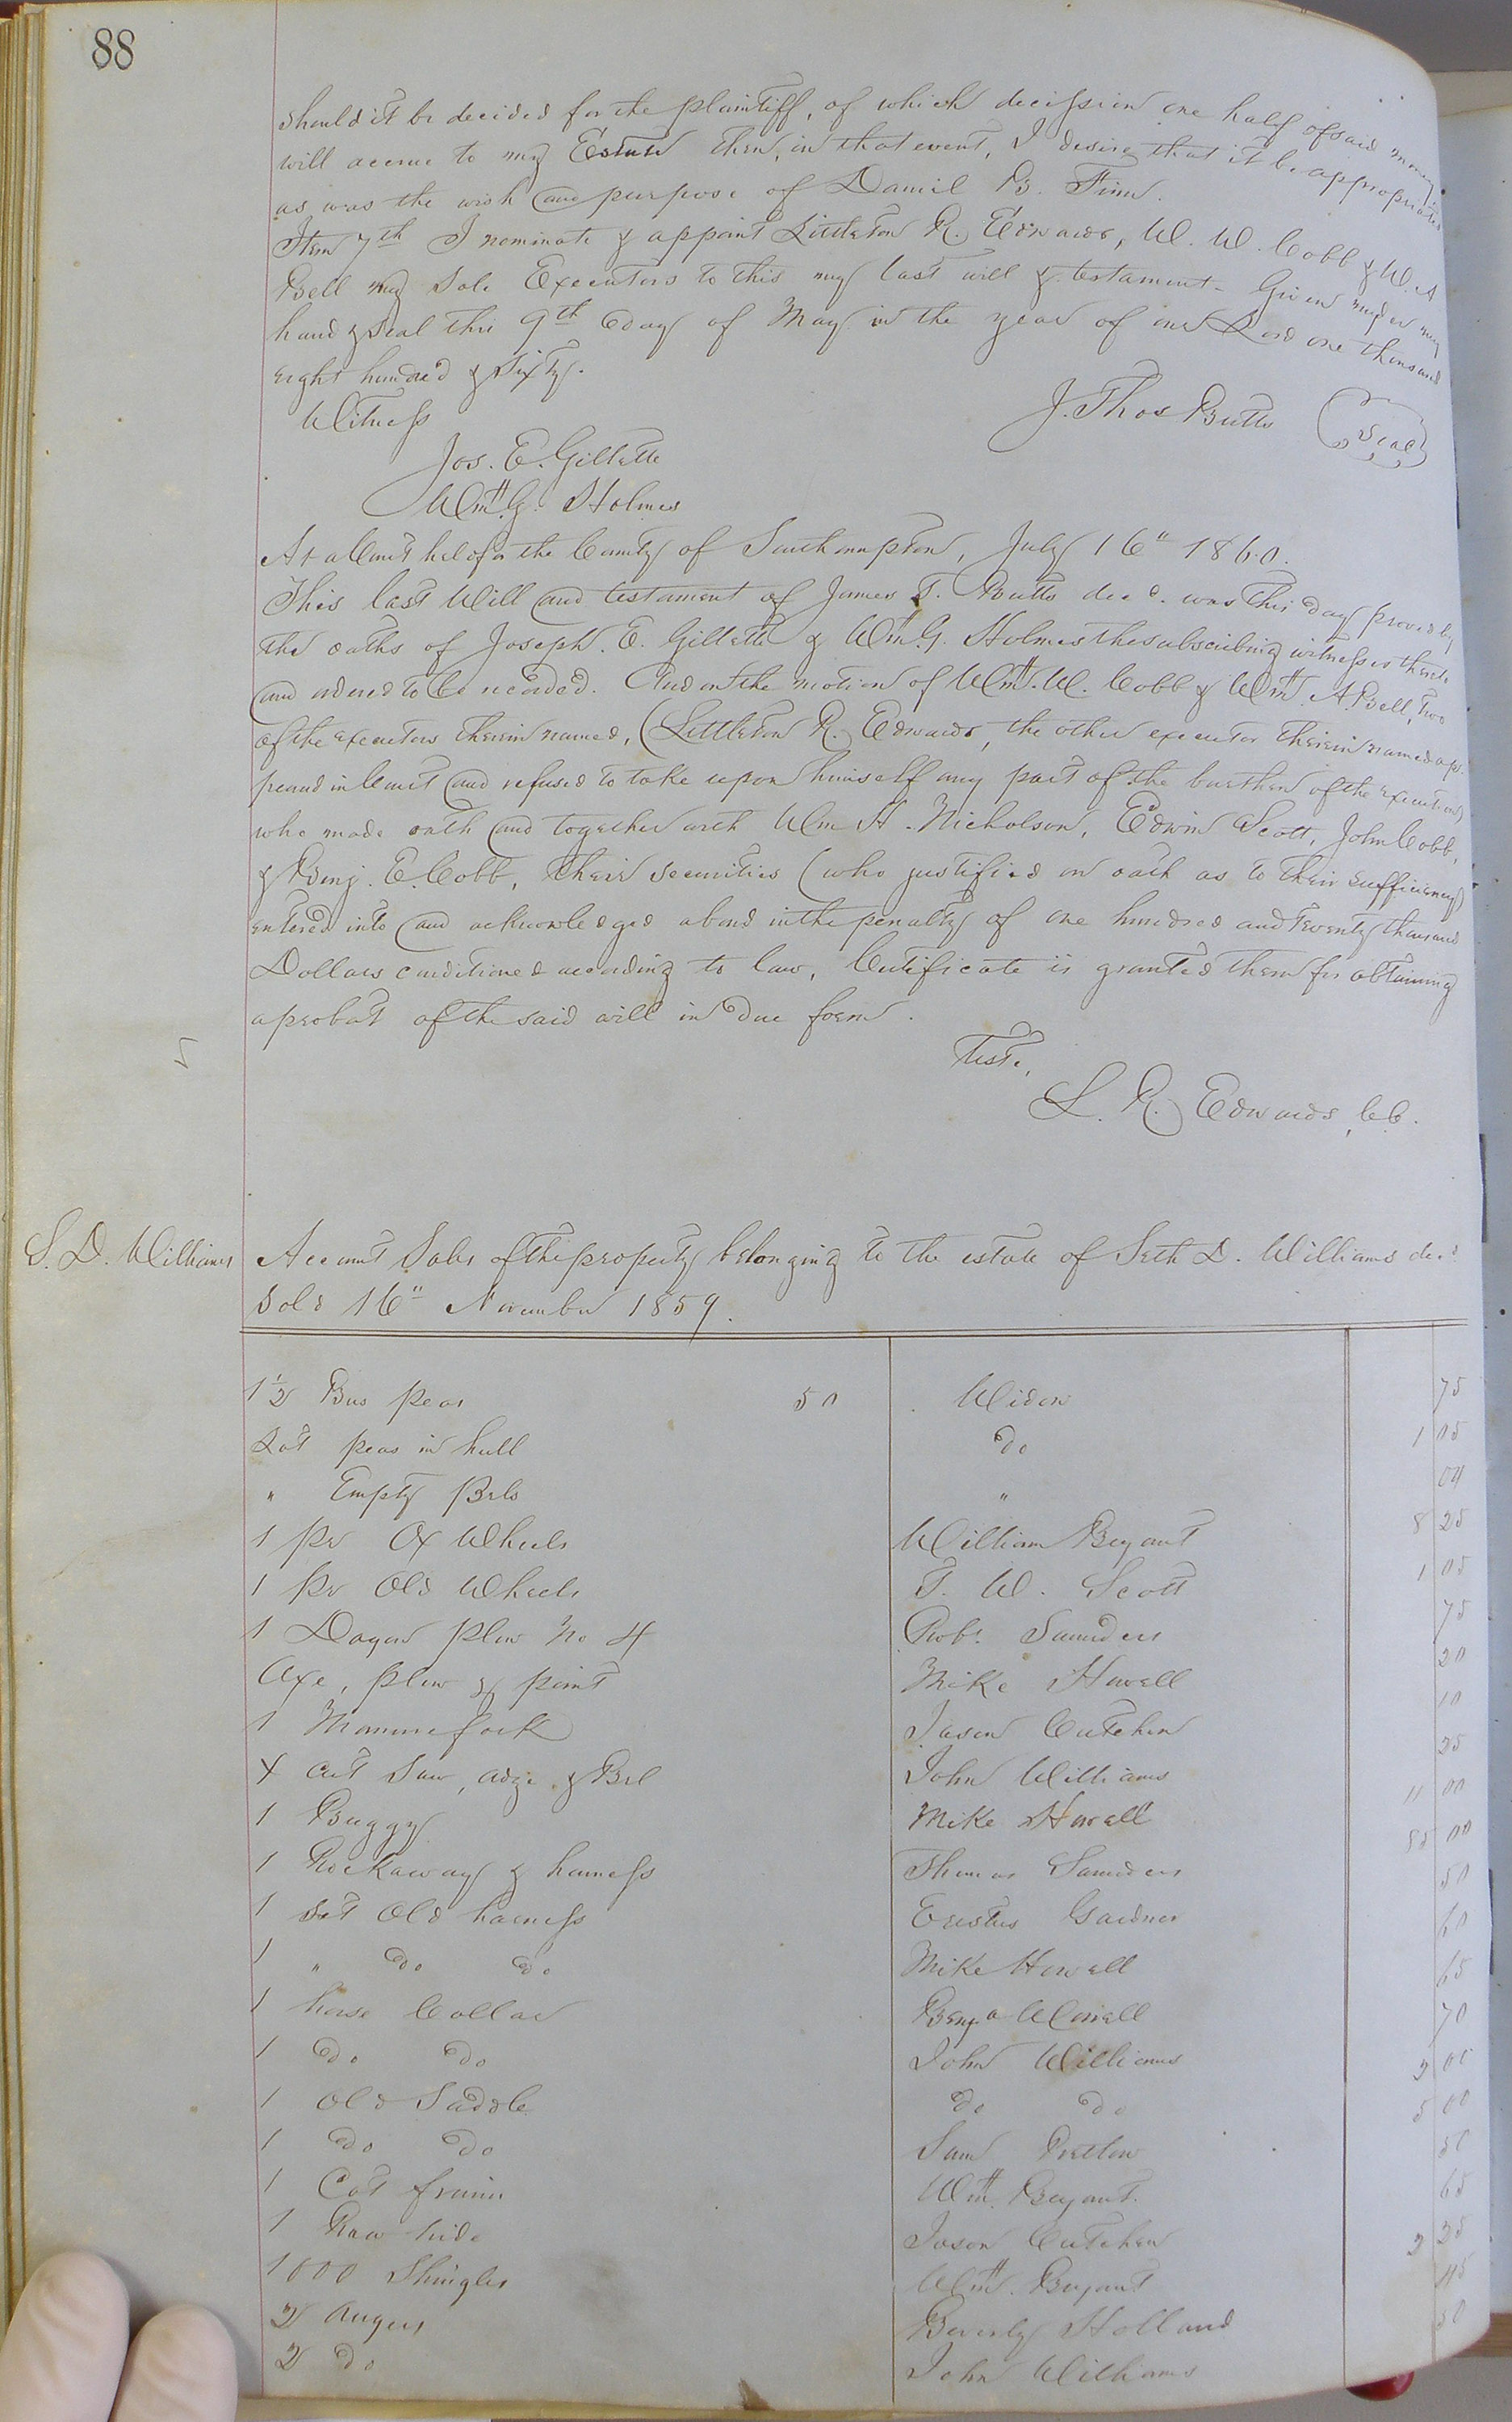 88
should it be decided for the plaintiff, of which decission one half of said money
will accrue to my Estate then, in that event, I desire that it be appropriated
as was the wish and purpose of Daniel B. Finn.
Item 7th I nominate & appoint Littleton R. Edwards, W. W. Cobb & W. A
Bell my Sole Executors to this my last will & testament - Given under my
hand & seal this 9th day of May in the year of our Lord one thousand
eight hundred & sixty.
Witness
J. Thos Butts Seal
Jos. E. Gillette
Wm. G. Holmes
At a Court held for the County of Southampton, July 16" 1860.
This last Will and testament of James T. Butts decd. was this day proved by
the oaths of Joseph. E. Gillette & Wm. G. Holmes the subscribing witnesses thereto
and ordered to be recorded. And on the motion of Wm. W. Cobb & Wm. A. Bell, two
of the executors therein named, (Littleton R. Edwards, the other executor therein named ap-
peared in Court and refused to take upon himself any part of the burthen of the execution)
who made oath and together with Wm H. Nicholson, Edwin Scott, John Cobb,
& Benj. E. Cobb, their securities (who justified on oath as to their sufficiency)
entered into and acknowledged a bond in the penalty of one hundred and twenty thousand
Dollars conditioned according to law, Certificate is granted them for obtaining
a probat of the said will in due form.
Teste,
L. R. Edwards, C.C.
S. D. Williams Account Sales of the property belonging to the estate of Seth D. Williams decd
Sold 16" November 1859.
1 1/2 Bus peas 50 Widow 75
Lot peas in hull do 1 05
" Empty Brls " 04
1 Pr Ox Wheels William Bryant 8 25
1 Pr Old Wheels T. W. Scott 1 05
1 Dagon plow No 4 Robt. Saunders 75
Axe, plow & point Mike Howell 20
1 Manure fork Jason Cutchin 10
X Cut Saw, adze & Brl John Williams 25
1 Buggy Mike Howell 11 00
1 Rockaway & harness Thomas Saunders 00
1 Set Old harness Erastus Gardner 50
1 " do do Mike Howell 60
1 horse Collar Benja Worrell 65
1 do do John Williams 70
1 Old Saddle do do 2 00
1 do do Sam Pretlow 5 00
1 Cot frame Wm. Bryant. 50
1 Raw hide Jason Cutchin 65
1000 Shingles Wm. Bryant 2 25
2 Augers Beverly Holland
2 do John Williams 50